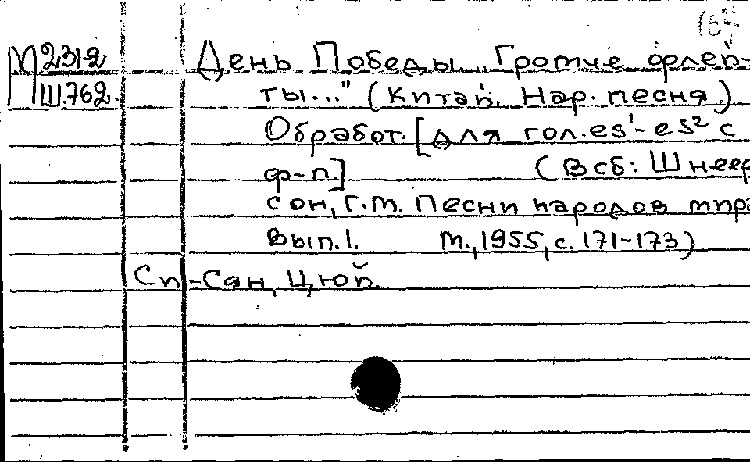 М 2312
Ш.762
День Победы „Громче флей-
ты..." (Китай. Нар. песня.)
Обработ. [для гол. es¹-es² с
ф-п.] (В сб: Шнеер
сон, Г.М. Песни народов мира
Вып. 1. М., 1955, с. 171-173)
Сы-Сян, Цюй.